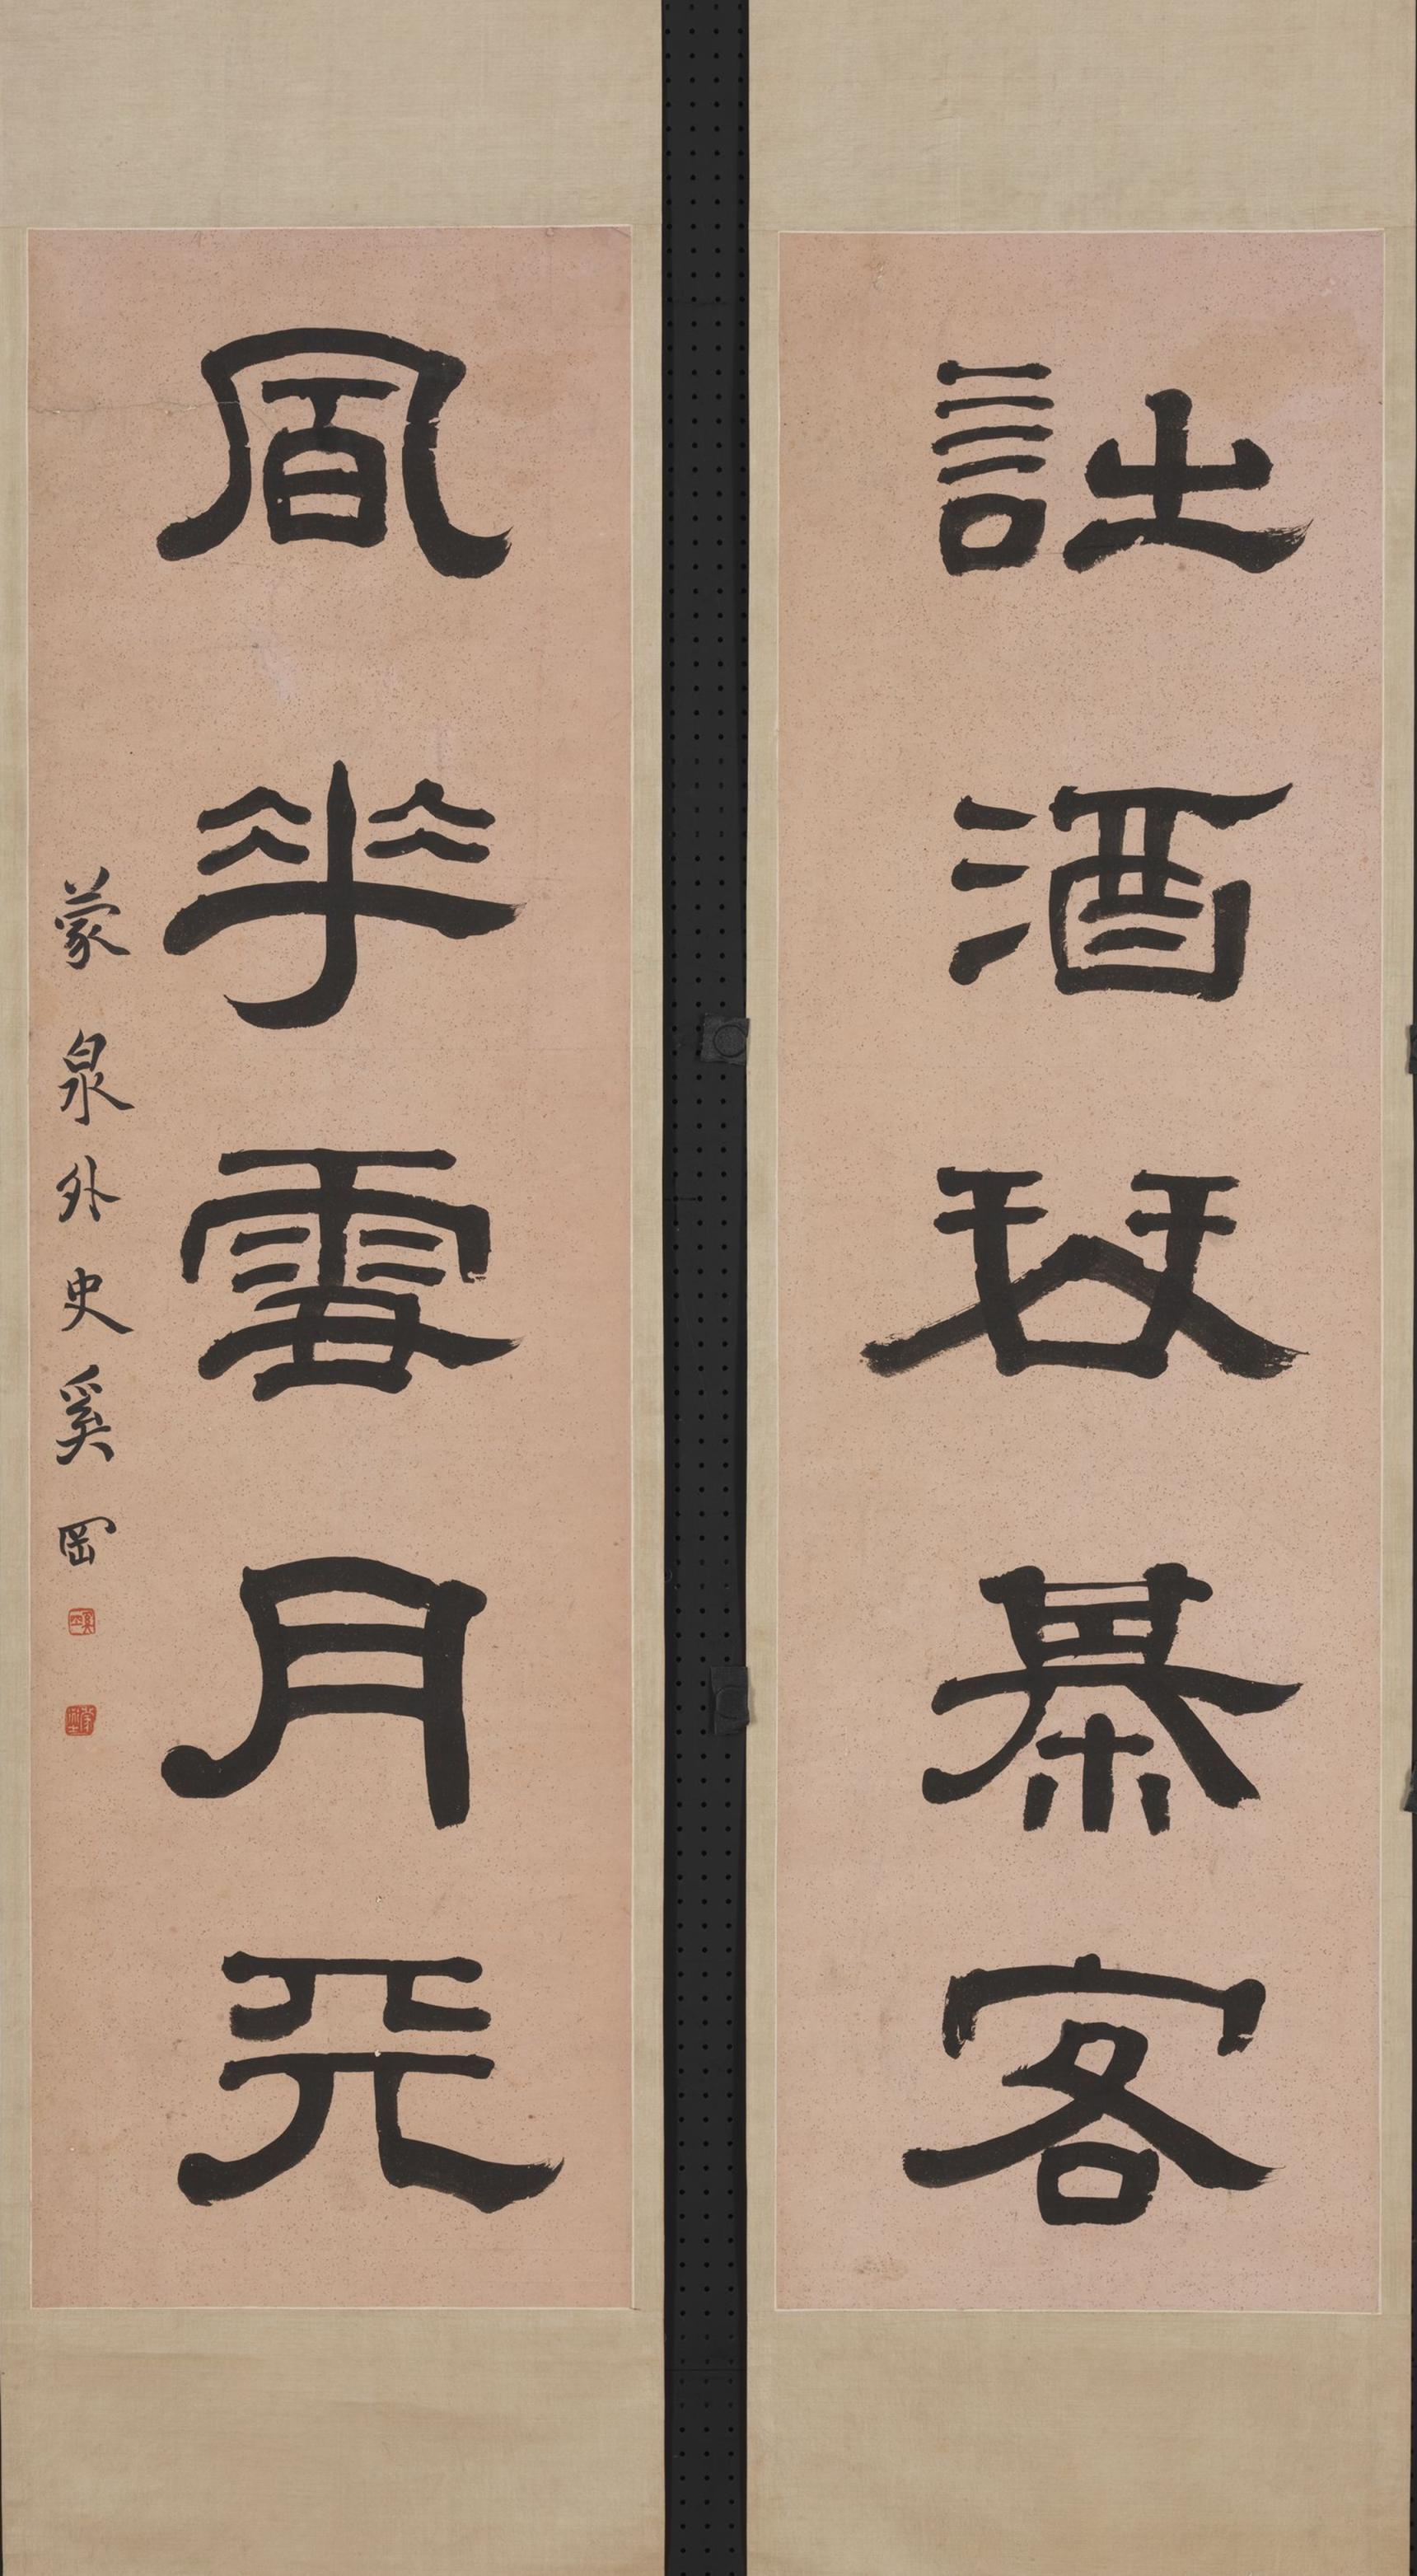 詩酒琴棊客
風華雪月天
蒙泉外史奚岡